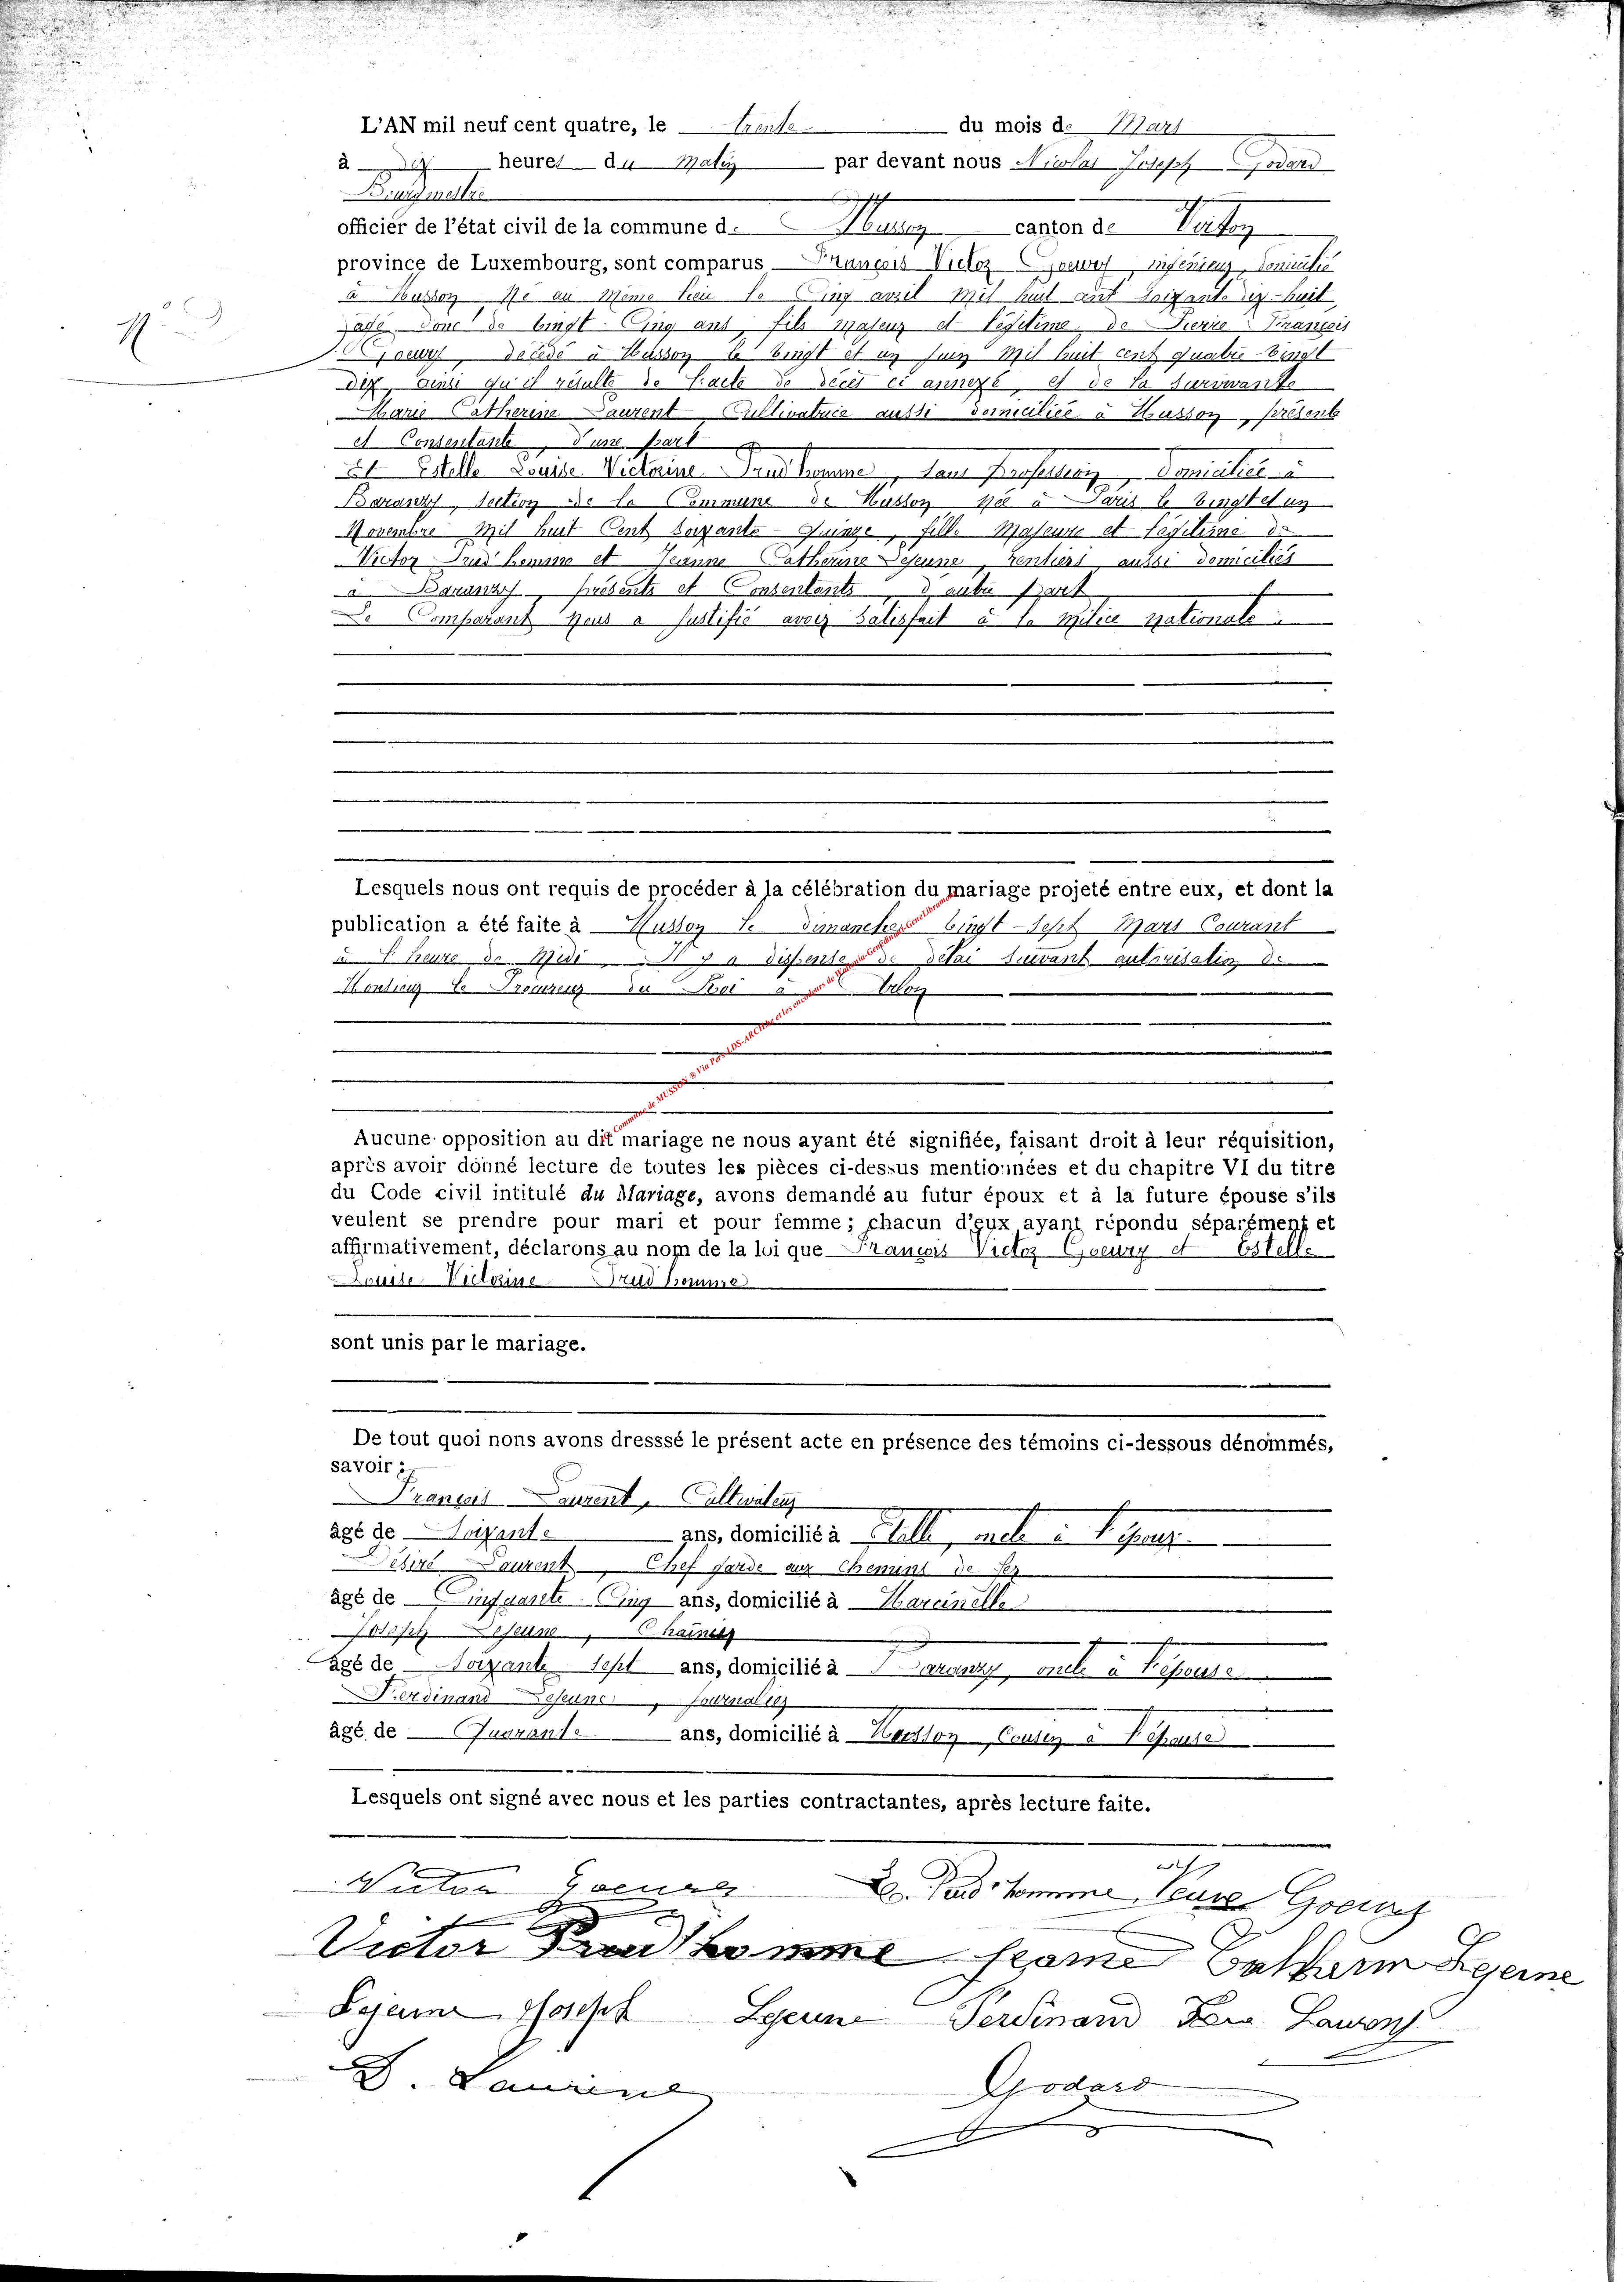 L'AN mil neuf cent quatre, le trente du mois de Mars
à Dix heures du Matin par devant nous Nicolas Joseph Godard
Bourgmestre
officier de l'état civil de la commune de Musson canton de Virton
province de Luxembourg, sont comparus François Victor Goeury, ingénieur, domicilié
à Musson Né au même lieu le Cinq avril mil huit cent soixante dix-huit
âgé donc de vingt-Cinq ans, fils majeur et légitime de Pierre François
N°
Goeury, décédé à Musson le vingt et un juin mil huit cent quatre-vingt
dix, ainsi qu'il résulte de l'acte de décès ci annexé, et de la survivante
Marie Catherine Laurent Cultivatrice aussi domiciliée à Musson, présente
et Consentante, d'une part
Et Estelle Louise Victorine Prud'homme, sans profession, domiciliée à
Baranzy, section de la Commune de Musson, Née à Paris le vingt et un
Novembre mil huit Cent soixante-quinze, fille Majeure et légitime de
Victor Prud'homme et Jeanne Catherine Lejeune, rentiers, aussi domiciliés
à Baranzy, présents et Consentants, d'autre part
Le Comparant Nous a justifié avoir satisfait à la milice nationale
Lesquels nous ont requis de procéder à la célébration du mariage projeté entre eux, et dont la
publication a été faite à Musson le dimanche vingt-sept Mars Courant
à l'heure de Midi. Il y a dispense de délai suivant autorisation de
Monsieur le Procureur du Roi à Arlon
Commune de MUSSON ® Via Pers LDS-ARCHive et les encodeurs de Wallonia-Gen
Aucune opposition au dit mariage ne nous ayant été signifiée, faisant droit à leur réquisition,
après avoir donné lecture de toutes les pièces ci-dessus mentionnées et du chapitre VI du titre
du Code civil intitulé du Mariage, avons demandé au futur époux et à la future épouse s'ils
veulent se prendre pour mari et pour femme ; chacun d'eux ayant répondu séparément et
affirmativement, déclarons au nom de la loi que François Victor Goeury et Estelle
Louise Victorine Prud'homme
sont unis par le mariage.
De tout quoi nons avons dresssé le présent acte en présence des témoins ci-dessous dénommés,
savoir :
François Laurent, Cultivateur
âgé de Soixante ans, domicilié à Halle, oncle à l'époux
Désiré Laurent, Chef garde aux Chemins de fer
âgé de Cinquante-Cinq ans, domicilié à Marcinelle
Joseph Lejeune, Chainier
âgé de Soixante sept ans, domicilié à Baranzy, oncle à l'épouse
Ferdinand Lejeune, Journalier
âgé de Quarante ans, domicilié à Musson, Cousin à l'épouse
Lesquels ont signé avec nous et les parties contractantes, après lecture faite.
Victor Goeury E. Prud'homme Veuve Goeury
Victor Prud'homme Jeanne Catherine Lejeune
Lejeune Joseph Lejeune Ferdinand Laurent
D. Laurent Godard